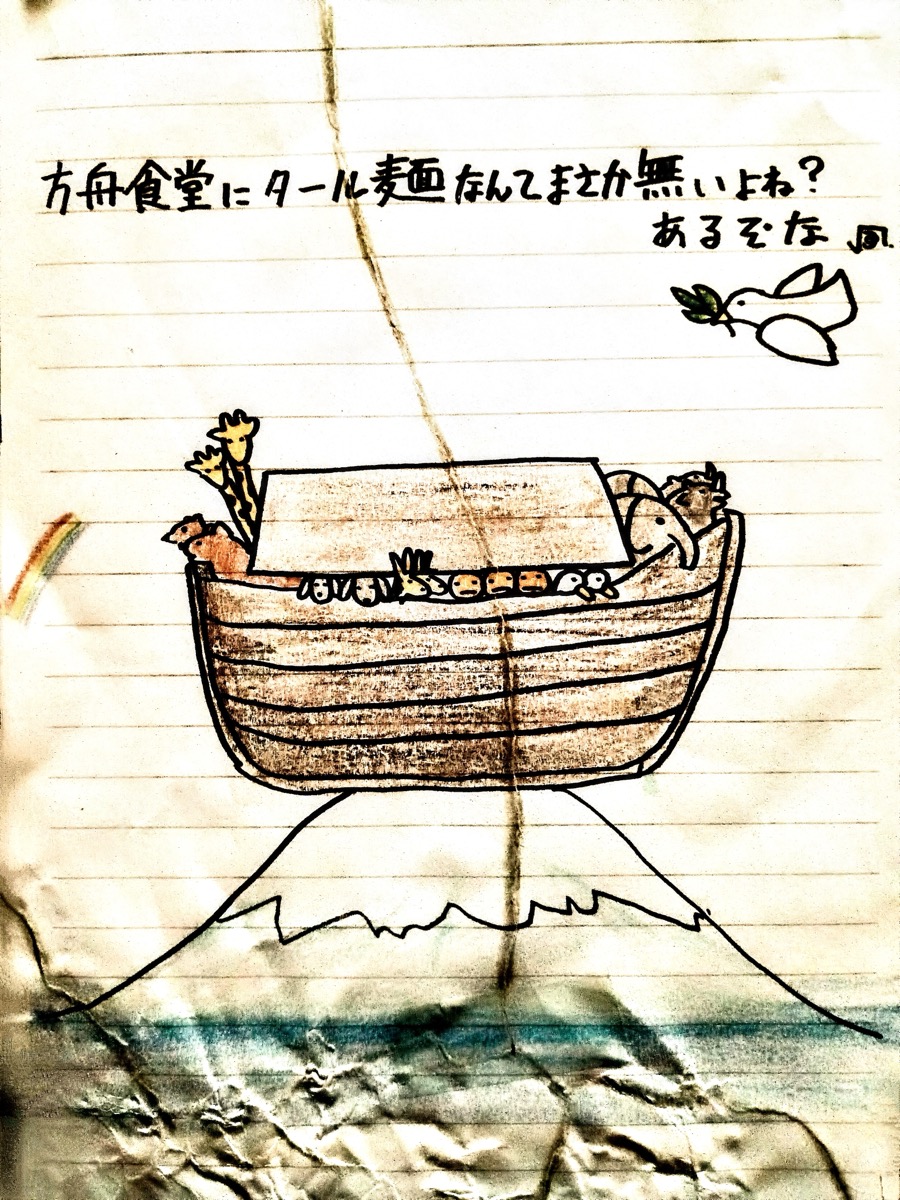 方舟食堂にタール麺なんてまさか無いよね?
あるぞな